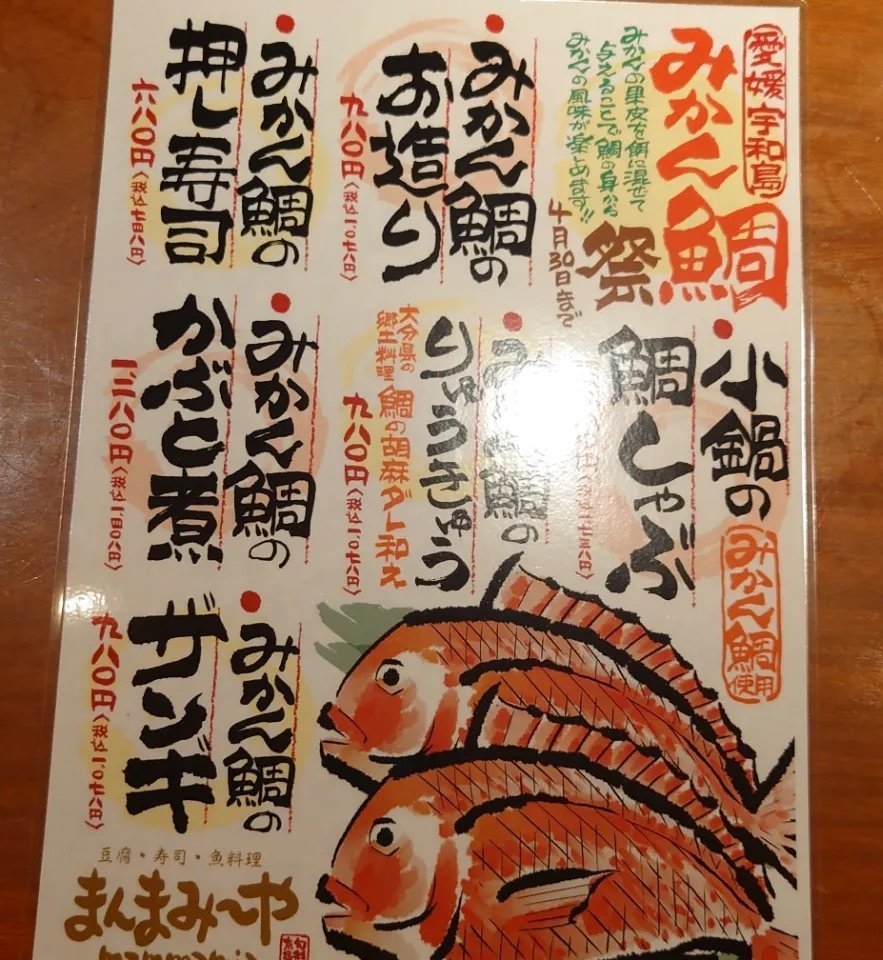 愛媛 宇和島
みかん鯛
祭
みかんの果皮を餌に混ぜて
与えることで鯛の身から
みかんの風味が楽しめます!!
4月30日まで
みかん鯛の
お造り
九八〇円〈税込一、〇七八円〉
みかん鯛の
押し寿司
六八〇円〈税込七四八円〉
小鍋の
みかん鯛
使用
鯛しゃぶ
鯛の
りゅうきゅう
大分県の
郷土料理
鯛の胡麻ダレ和え
九八〇円〈税込一、〇七八円〉
みかん鯛の
かぶと煮
一、二八〇円〈税込一、四〇八円〉
みかん鯛の
ザンギ
九八〇円〈税込一、〇七八円〉
豆腐・寿司・魚料理
まんまみ〜や